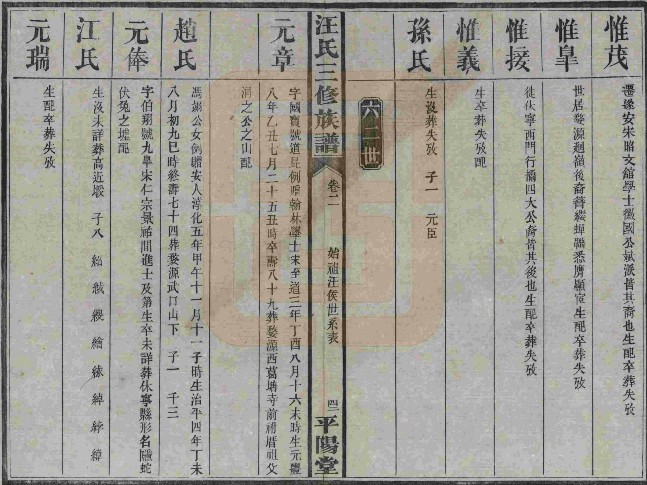 惟茂
遷遂安宋昭文館學士徽國公斌派皆其裔也生配卒葬失攷
惟臯
世居婺源廻嶺後裔簪纓蟬聯悉膺顯宦生配卒葬失攷
惟授
徙休寧西門行滿四大公裔皆其後也生配卒葬失攷
惟義
生卒葬失攷配
孫氏
生沒葬失攷 子一 元臣
六二世
汪氏三修族譜
卷二
始祖汪侯世系表
四二
平陽堂
元章
字國寶號道昆例贈翰林學士宋至道三年丁酉八月十六未時生元豐
八年乙丑七月二十五丑時卒壽八十九葬婺源西葛塘寺前禮厝祖父
渭之公之山配
趙氏
馮錫公女例贈安人淳化五年甲午十一月十一子時生治平四年丁未
八月初九巳時終壽七十四葬婺源武口山下 子一 千三
元俸
字伯翔號九臯宋仁宗景祐間進士及第生卒未詳葬休寧縣形名騰蛇
伏兔之墟配
江氏
生沒未詳葬高近塅 子八 紹 絨 綬 繪 綠 綽 綷 緯
元瑞
生配卒葬失攷